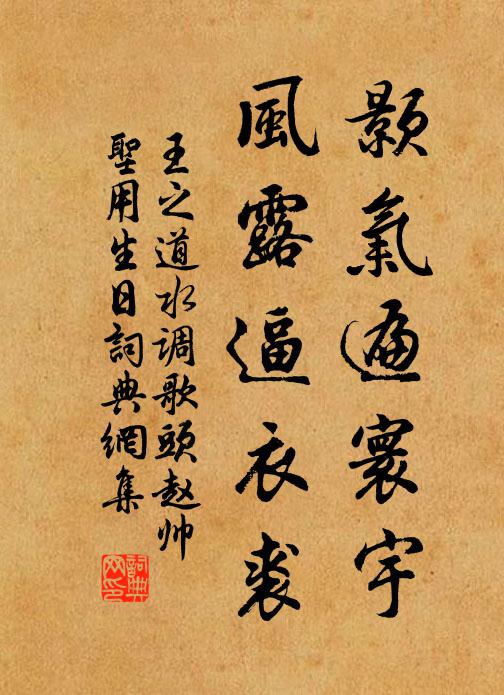 顥氣遍寰宇
風露逼衣裘
王之道水调歌頭赵帅
聖用生日詞典網集
詞典网印